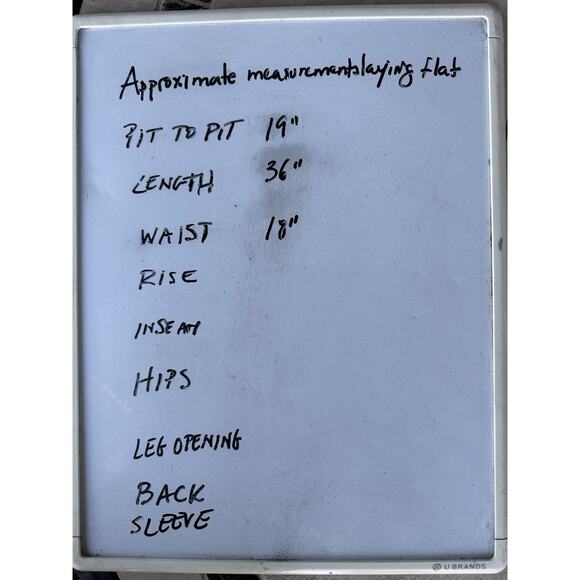 Approximate measurements laying flat
PIT TO PIT 19"
LENGTH 36"
WAIST 18"
RISE
INSEAM
HIPS
LEG OPENING
BACK
SLEEVE
U BRANDS